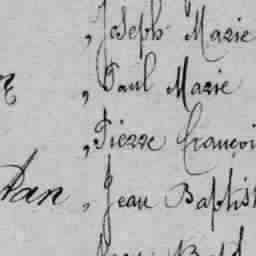 , Joseph Marie
, Paul Marie
, Pierre Françoi
, Jean Baptis